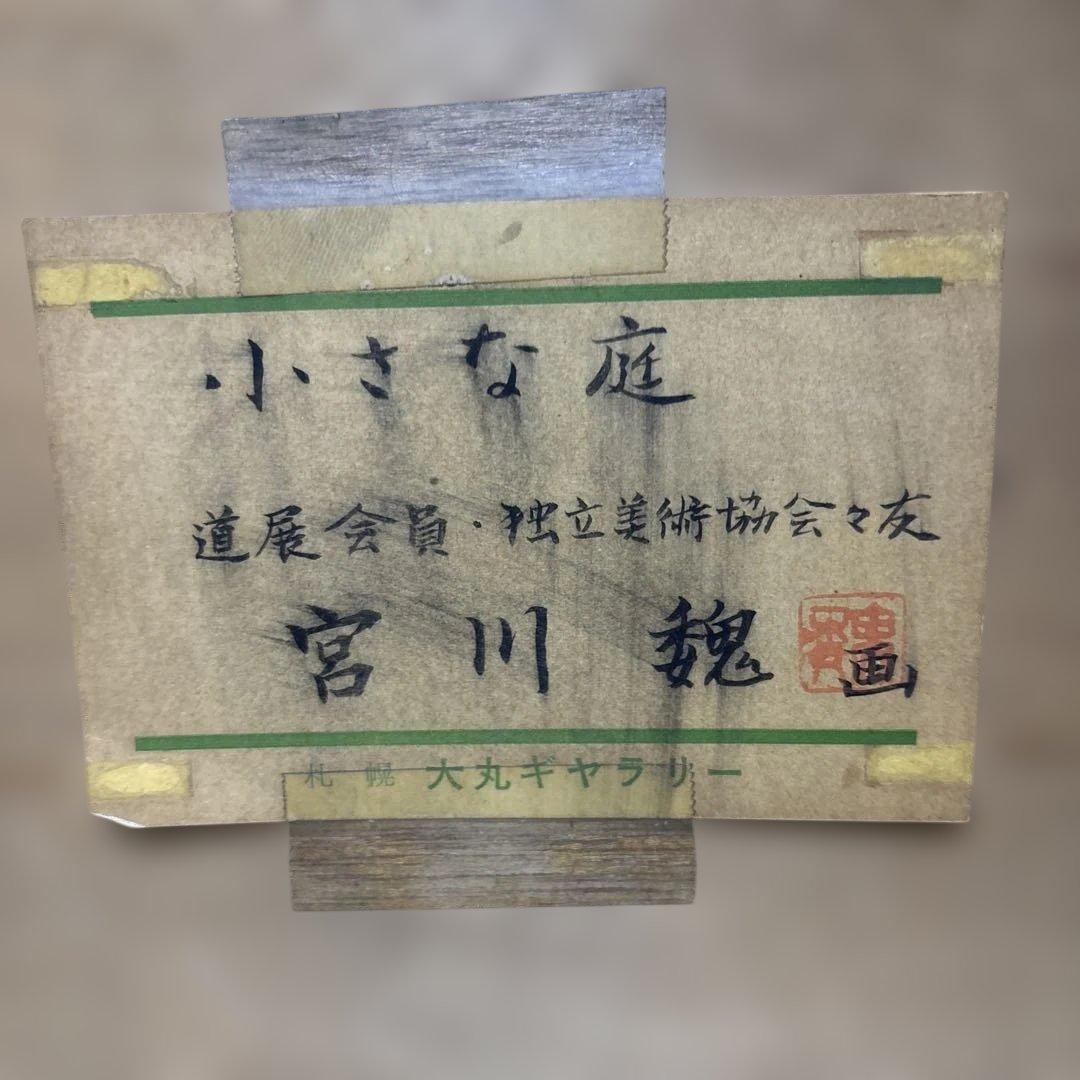 小さな庭
道展会員・独立美術協会々友
宮川 魏 画
札幌 大丸ギヤラリー